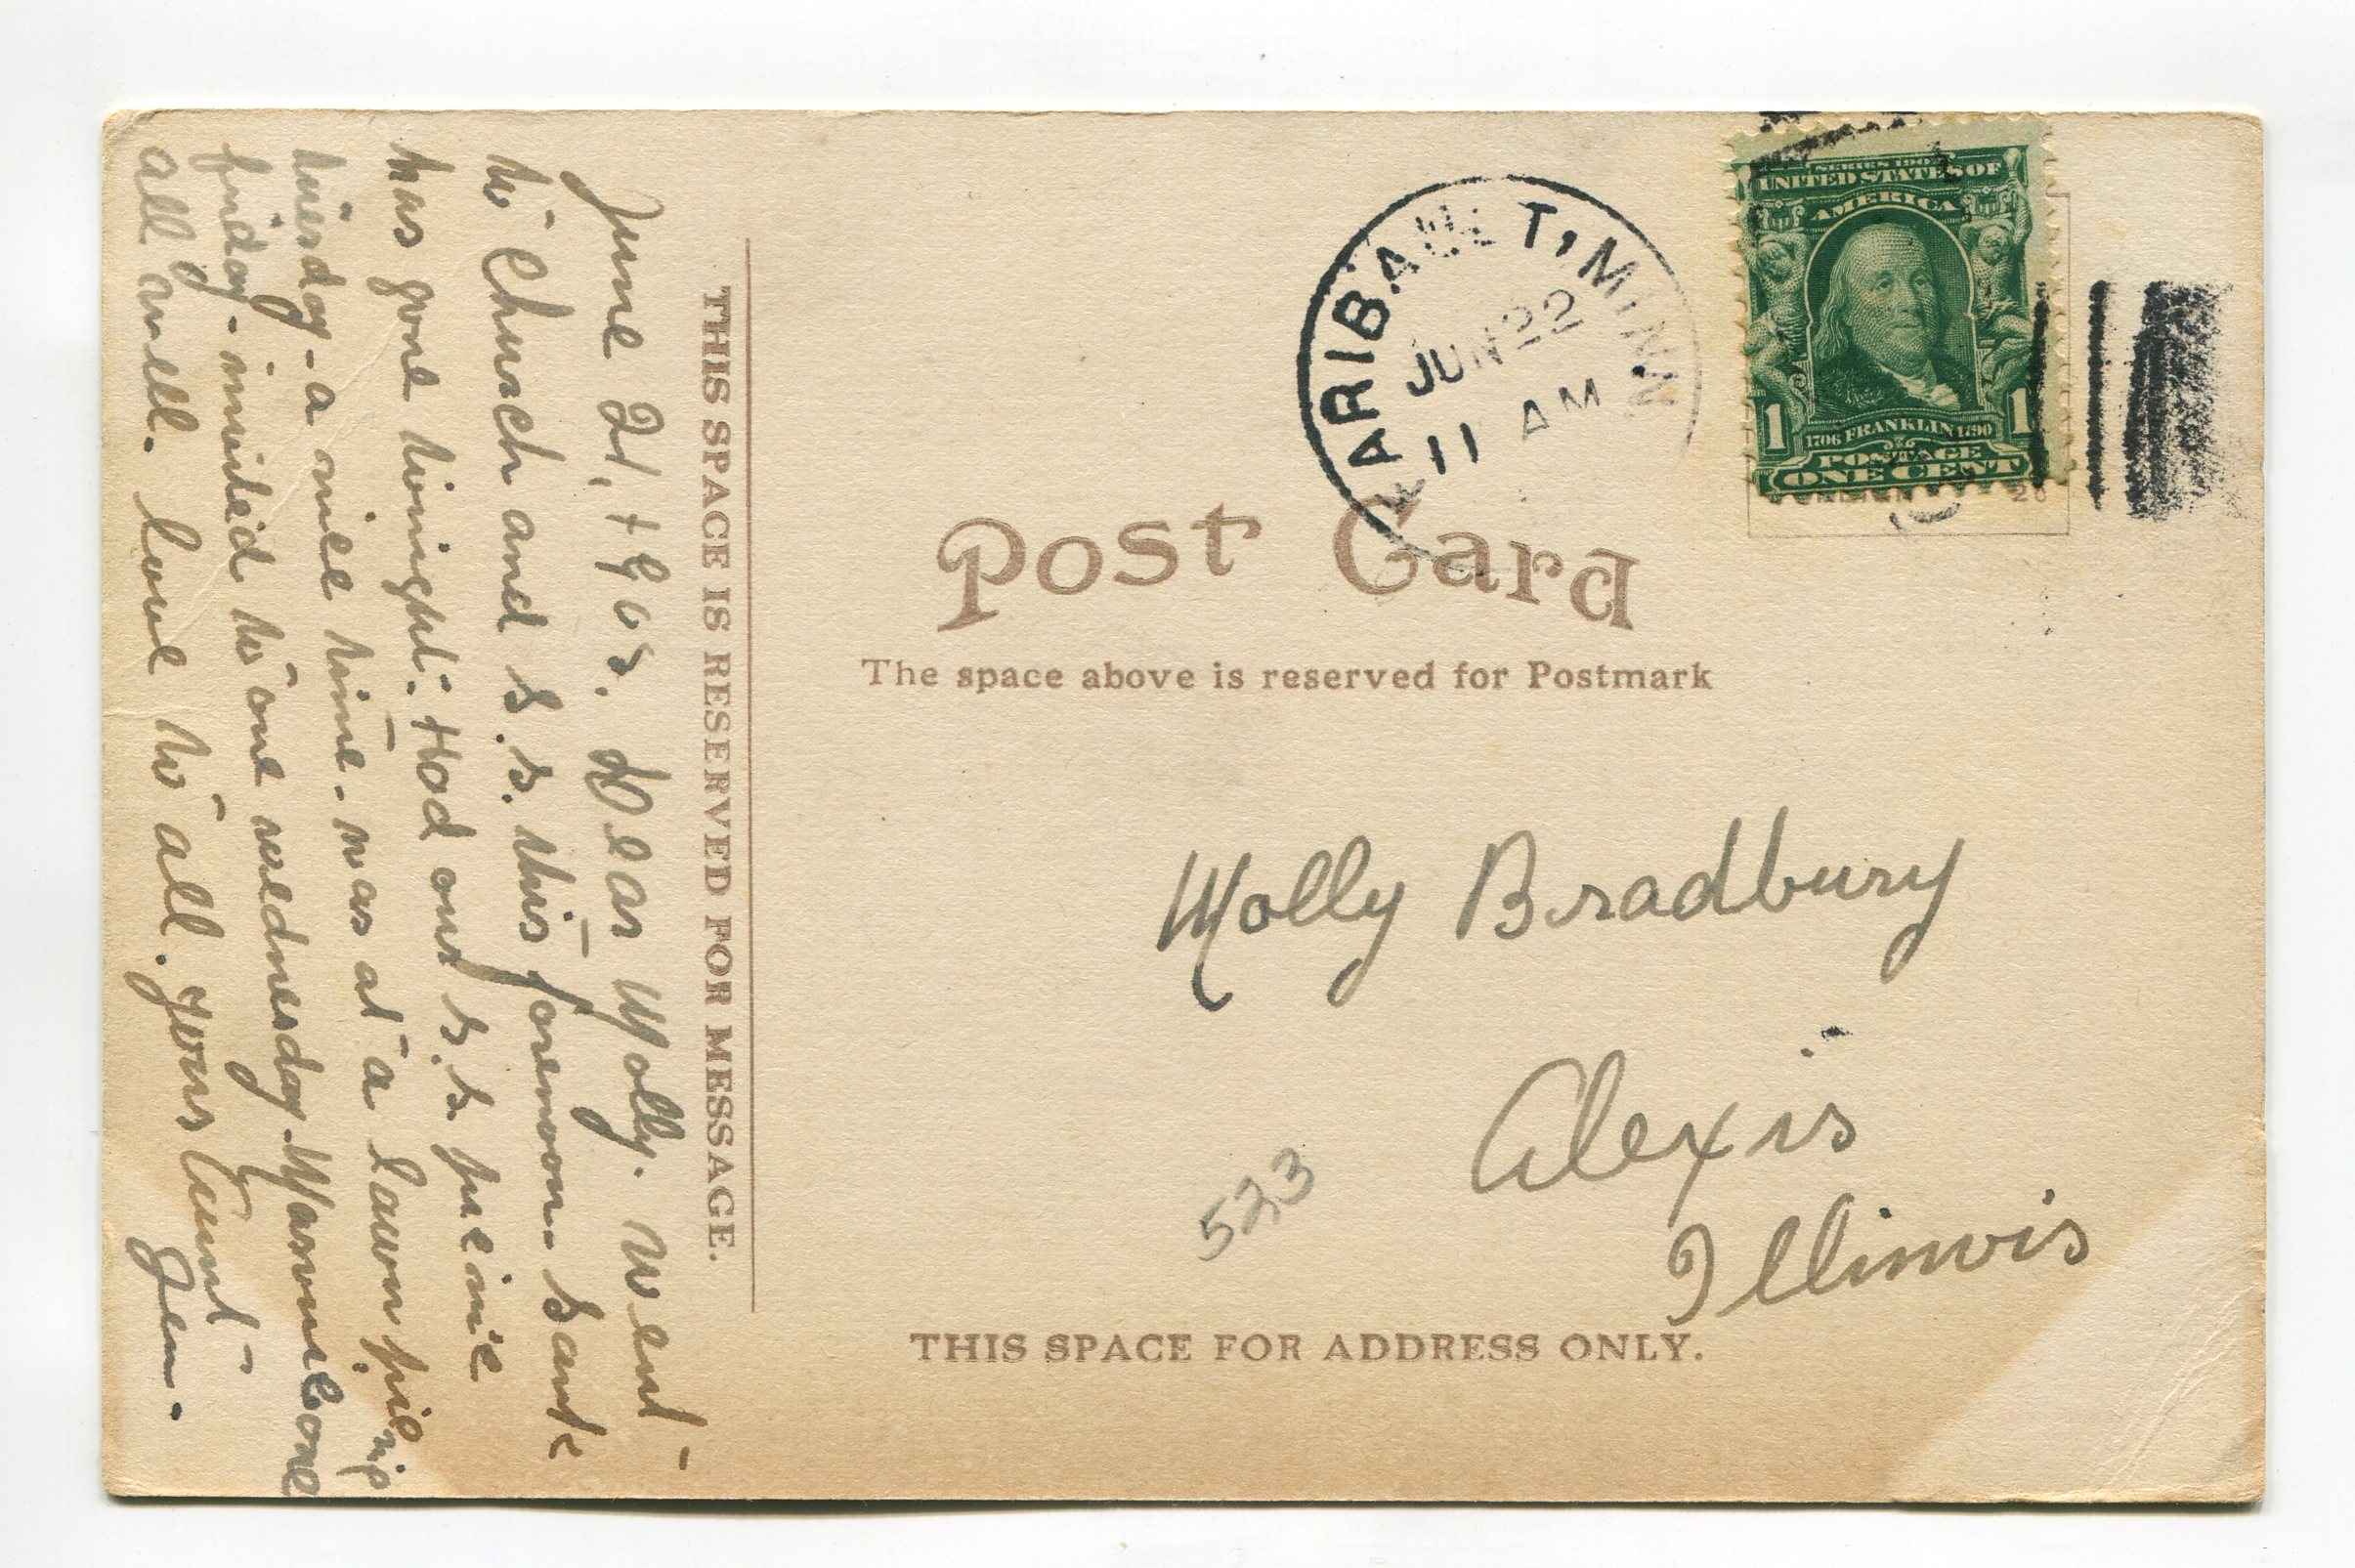 THIS SPACE IS RESERVED FOR MESSAGE.
June 21, 1908. Dear Molly. Went
to Church and S.S. this forenoon. Saut
has gone tonight. Had our S.S. picnic
tuesday - a nice time - was at a lawn
friday - invited to one wednesday.
all well. love to all. yours Aunt
Gem.
FARIBAULT, MINN
JUN 22
11 AM
SERIES 1902
UNITED STATES OF
AMERICA
1 1
1706 FRANKLIN 1790
POSTAGE
ONE CENT
Post Card
The space above is reserved for Postmark
Molly Bradbury
Alexis
Illinois
523
THIS SPACE FOR ADDRESS ONLY.